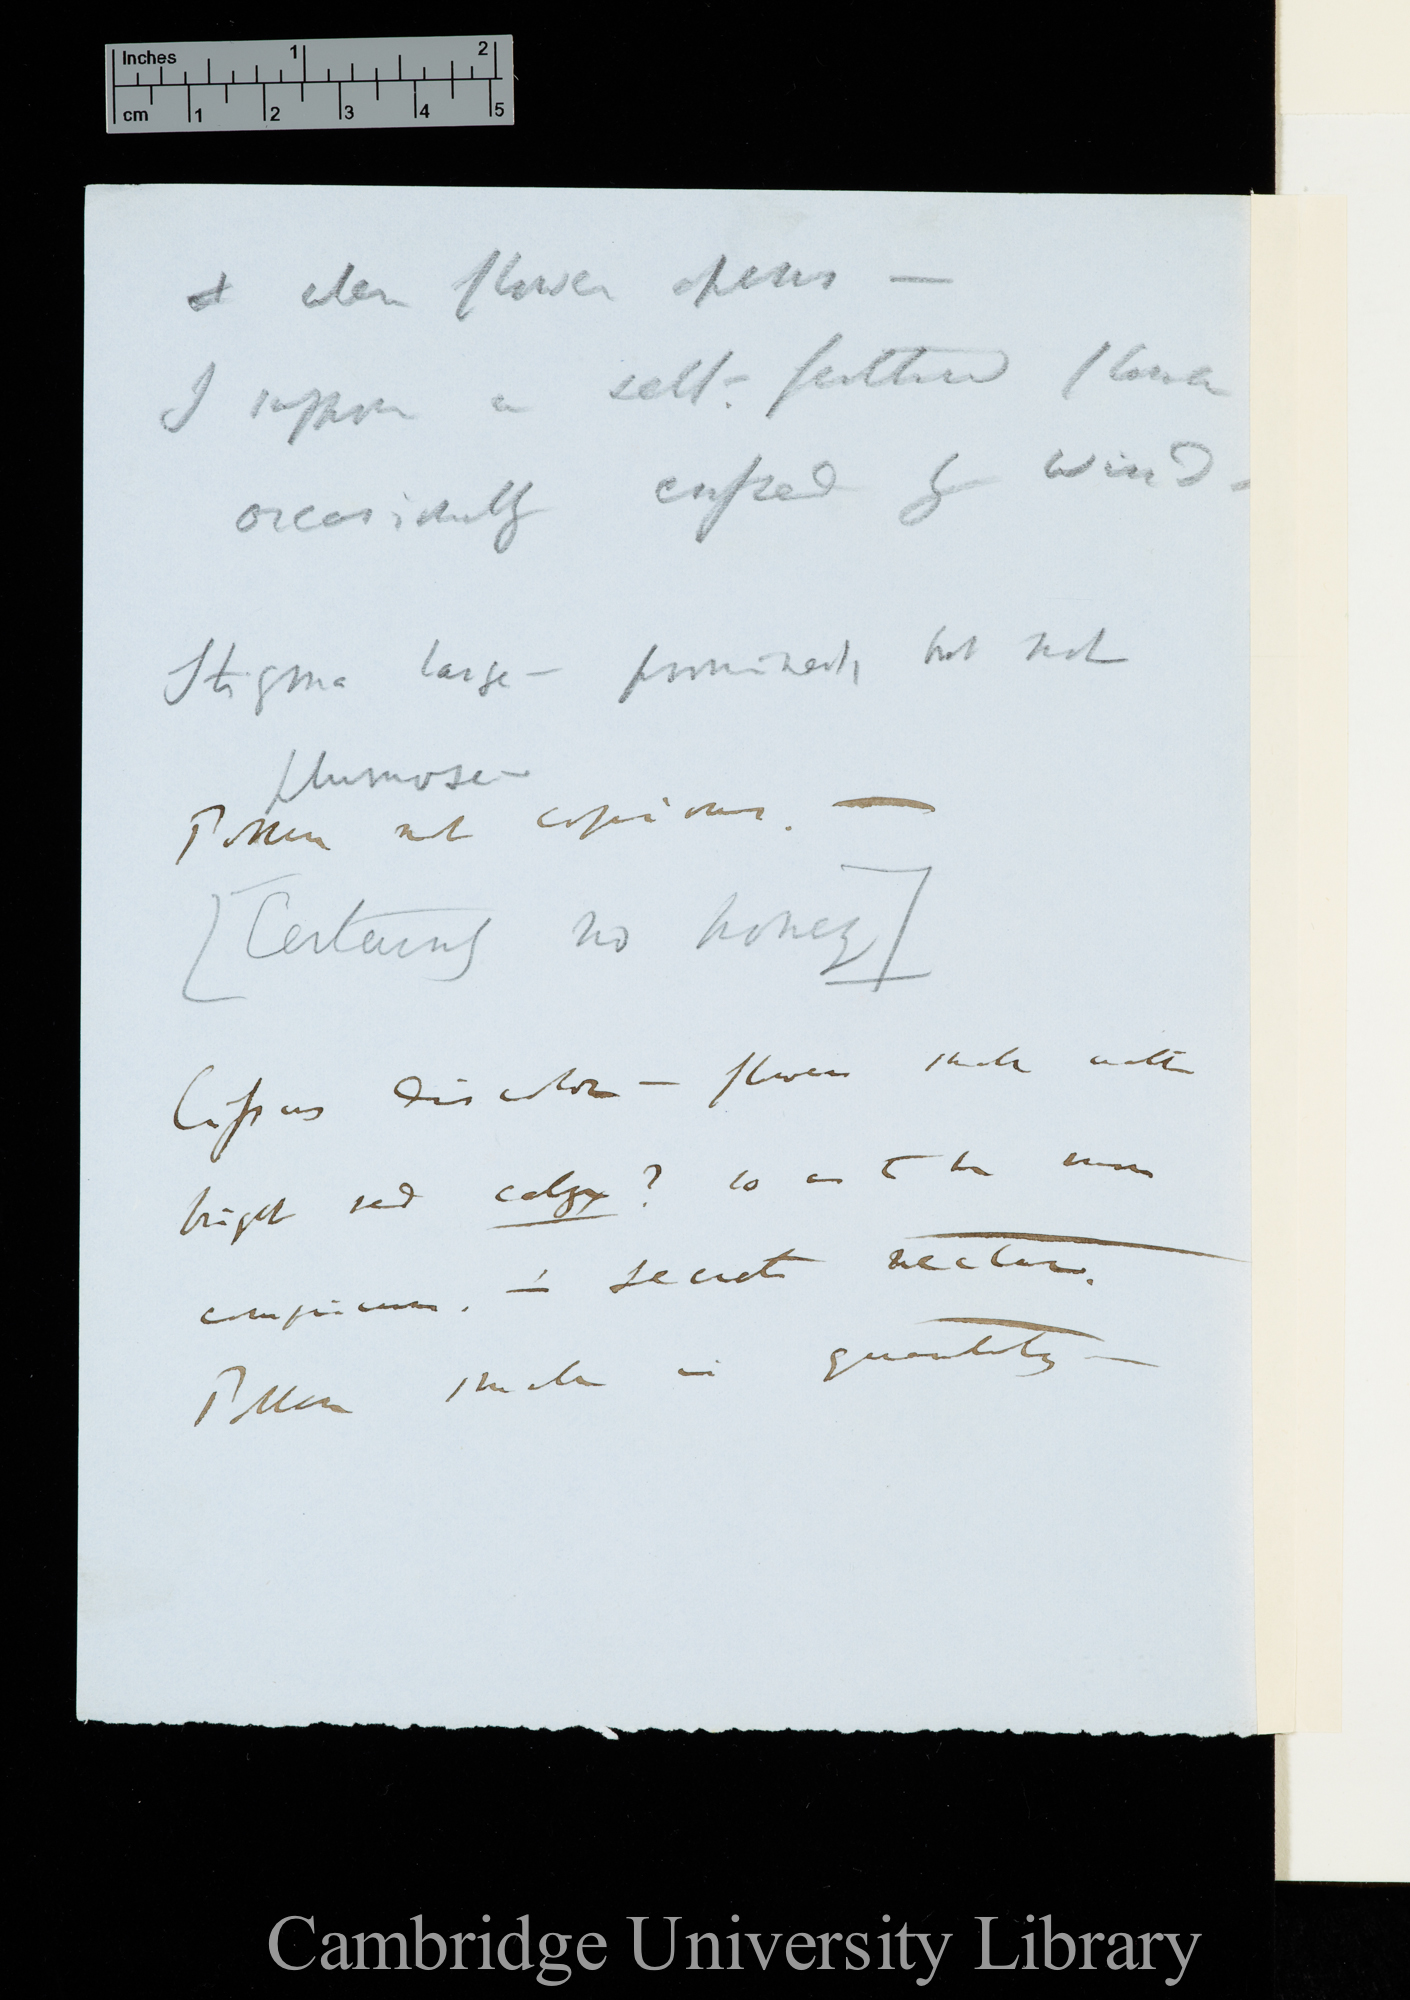 Inches 1 2
cm 1 2 3 4 5
& when flower opens —
I suppose a self-fertilised flower
occasionally crossed by wind.
Stigma large — prominent, but not
plumose —
Pollen not copious. —
[Certainly no honey]
Cissus discolor — flowers small with
bright red calyx? so as to be more
conspicuous. — secrete nectar.
Pollen small in quantity —
Cambridge University Library